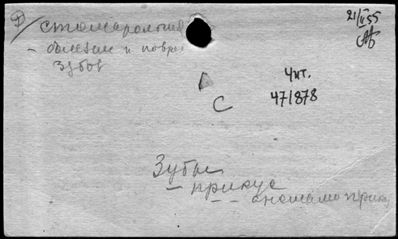 Стоматология
- болезни и повре
зубов
21/II 55
Чит.
47/878
С
Зубы
- прикус
- - аномалио прик